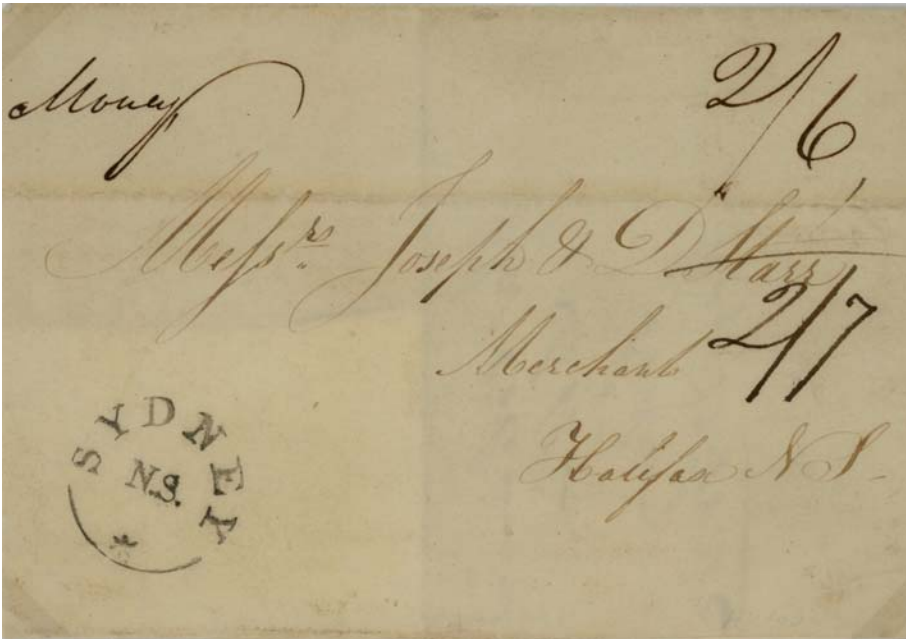 Money
2/6
Messrs. Joseph & D Starr
2/7
Merchant
Halifax N S -
SYDNEY
N.S.